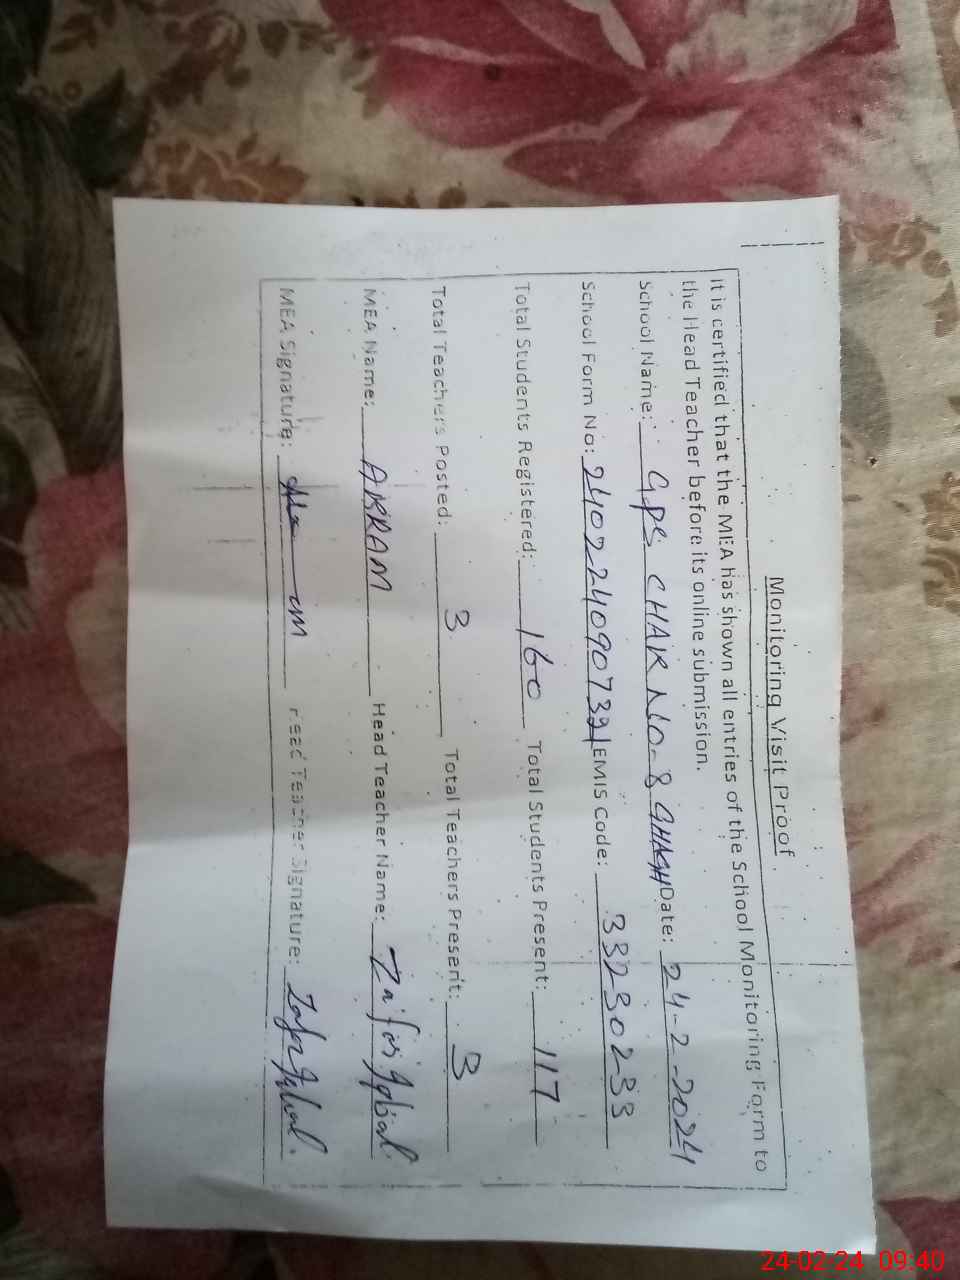 Monitoring Visit Proof
It is certified that the MEA has shown all entries of the School Monitoring Form to
the Head Teacher before its online submission.
School Name: GPS CHAK NO-8 GHAGH Date: 24-2-2024
School Form No: EMIS Code: 33230233
Total Students Registered: 160 Total Students Present: 117
Total Teachers Posted: 3 Total Teachers Present: 3
MEA Name: AKRAM Head Teacher Name: Zafar Iqbal
MEA Signature: Head Teacher Signature: Zafar Iqbal.
24-02-24 09:40